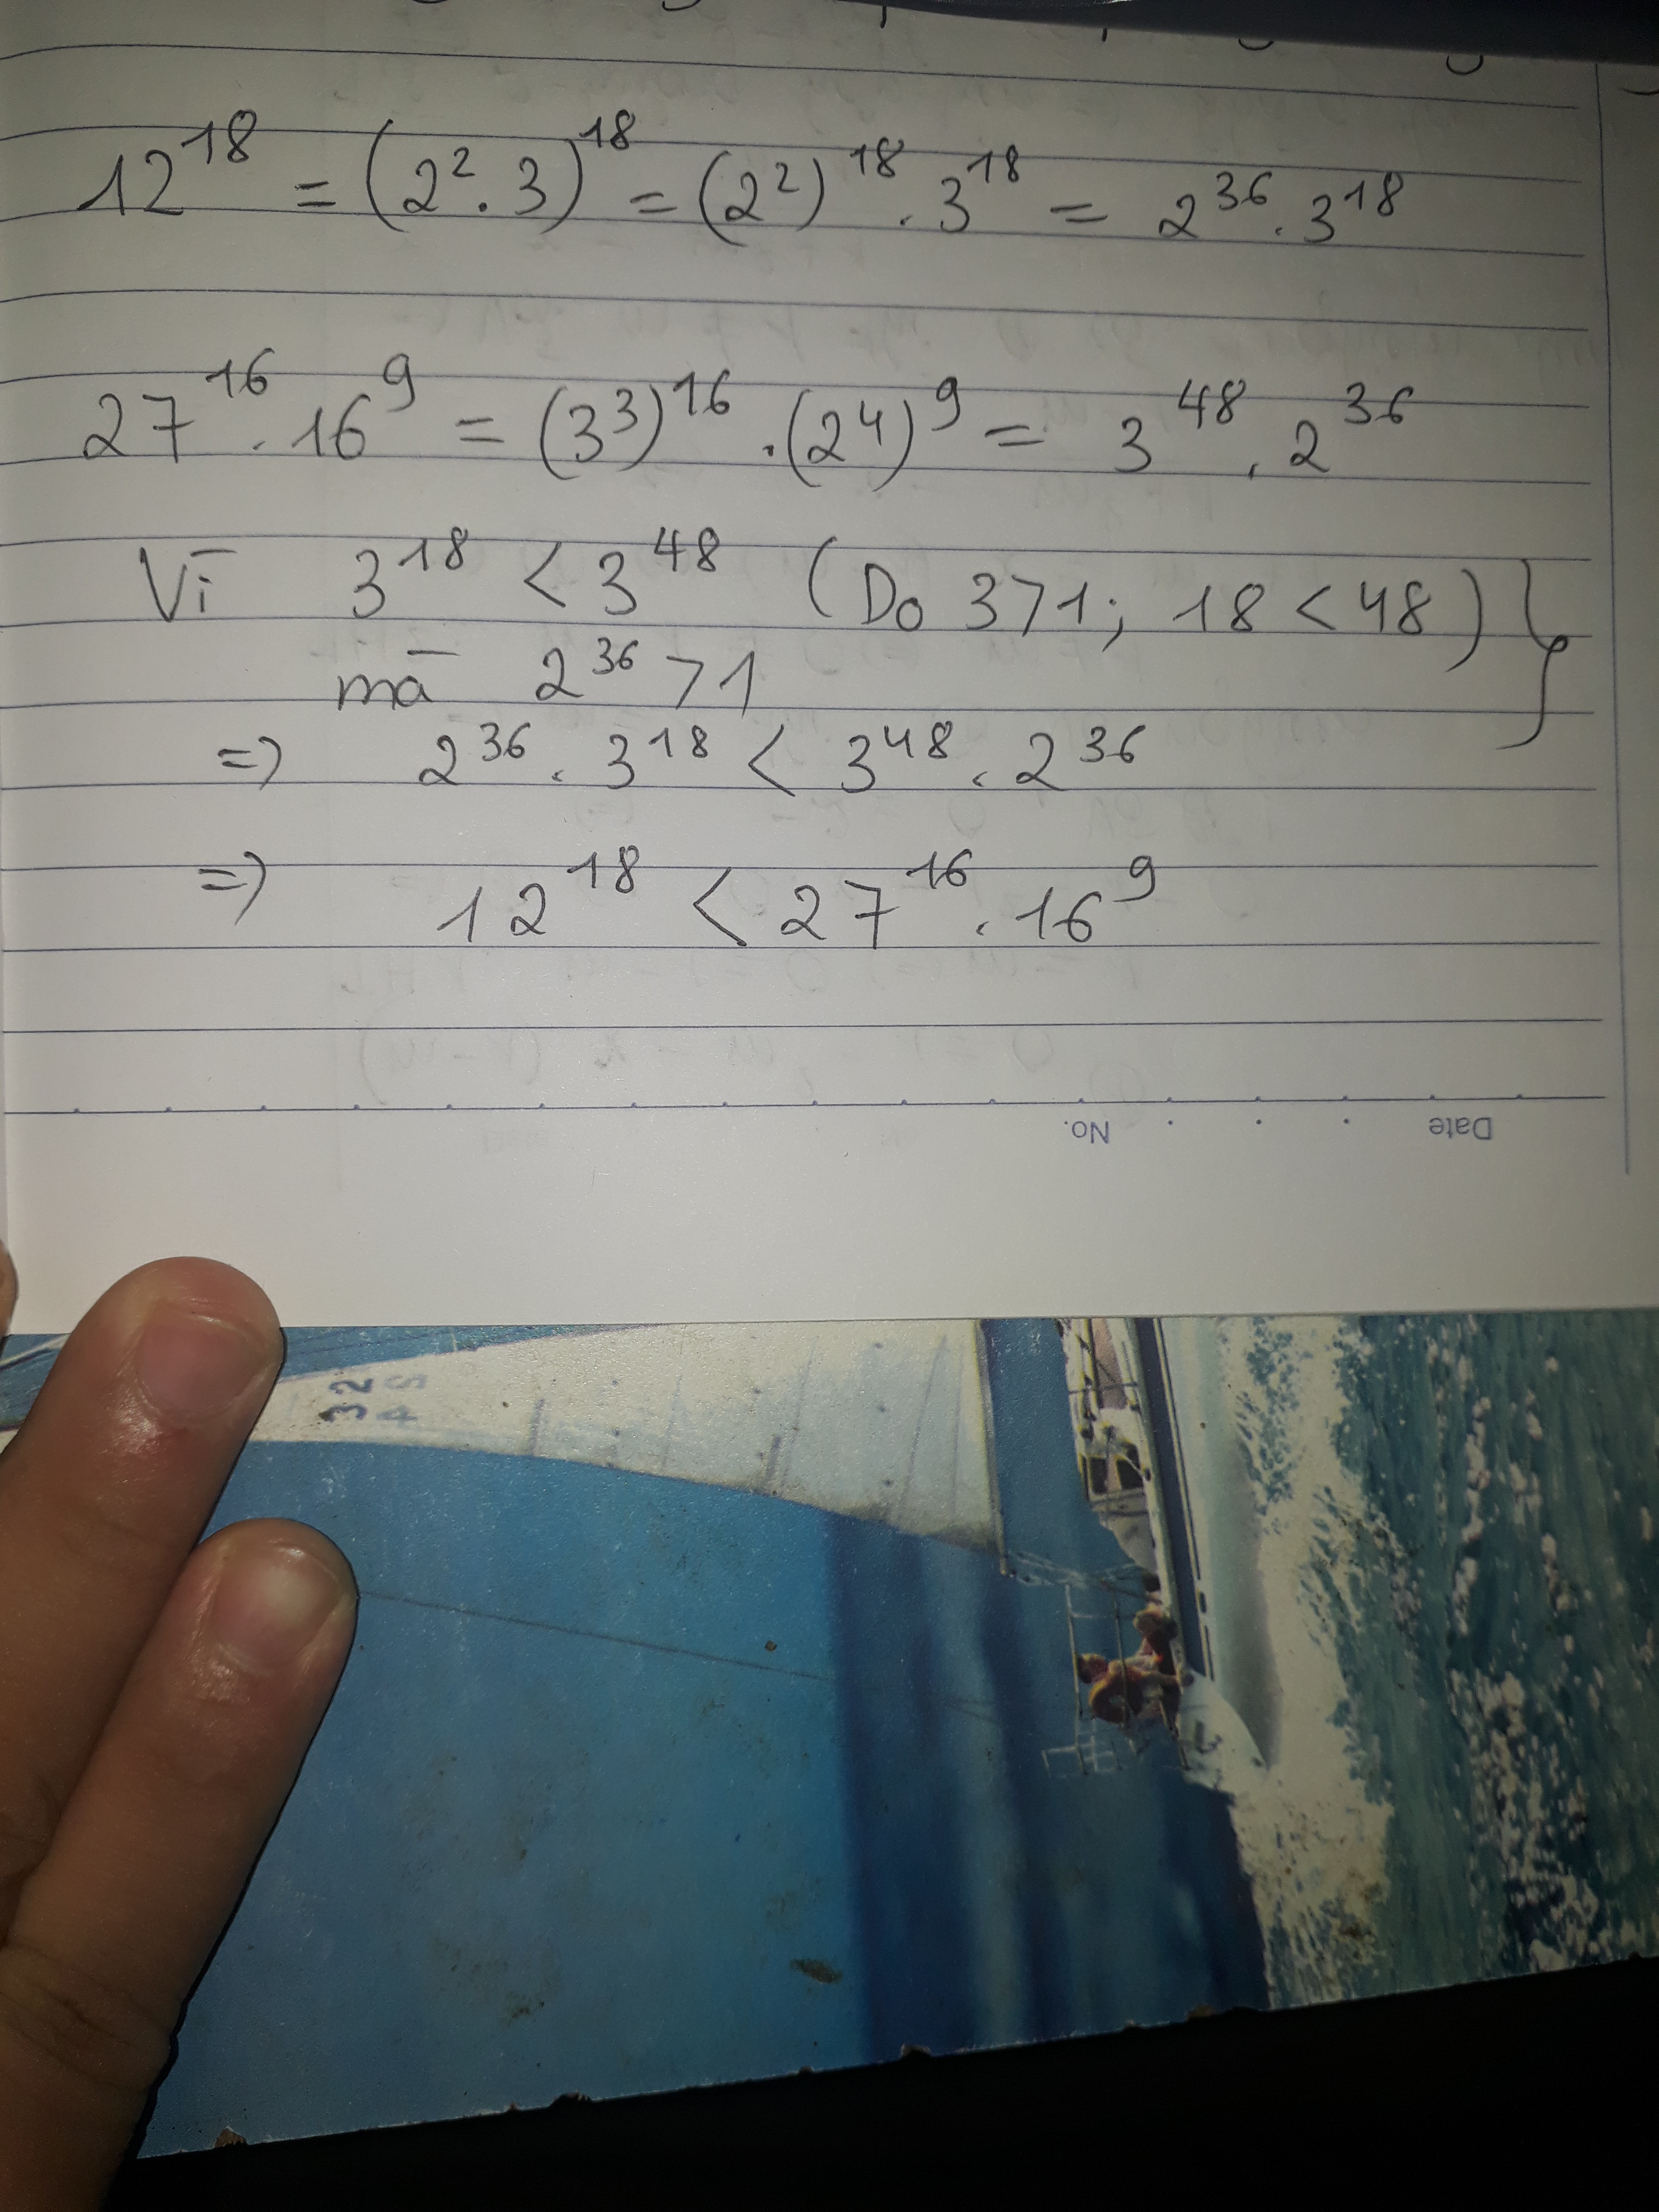 12^18 = (2^2 . 3)^18 = (2^2)^18 . 3^18 = 2^36 . 3^18
27^16 . 16^9 = (3^3)^16 . (2^4)^9 = 3^48 . 2^36
Vì 3^18 < 3^48 (Do 3>1; 18 < 48) }
mà 2^36 > 1
=> 2^36 . 3^18 < 3^48 . 2^36
=> 12^18 < 27^16 . 16^9
Date No.
32